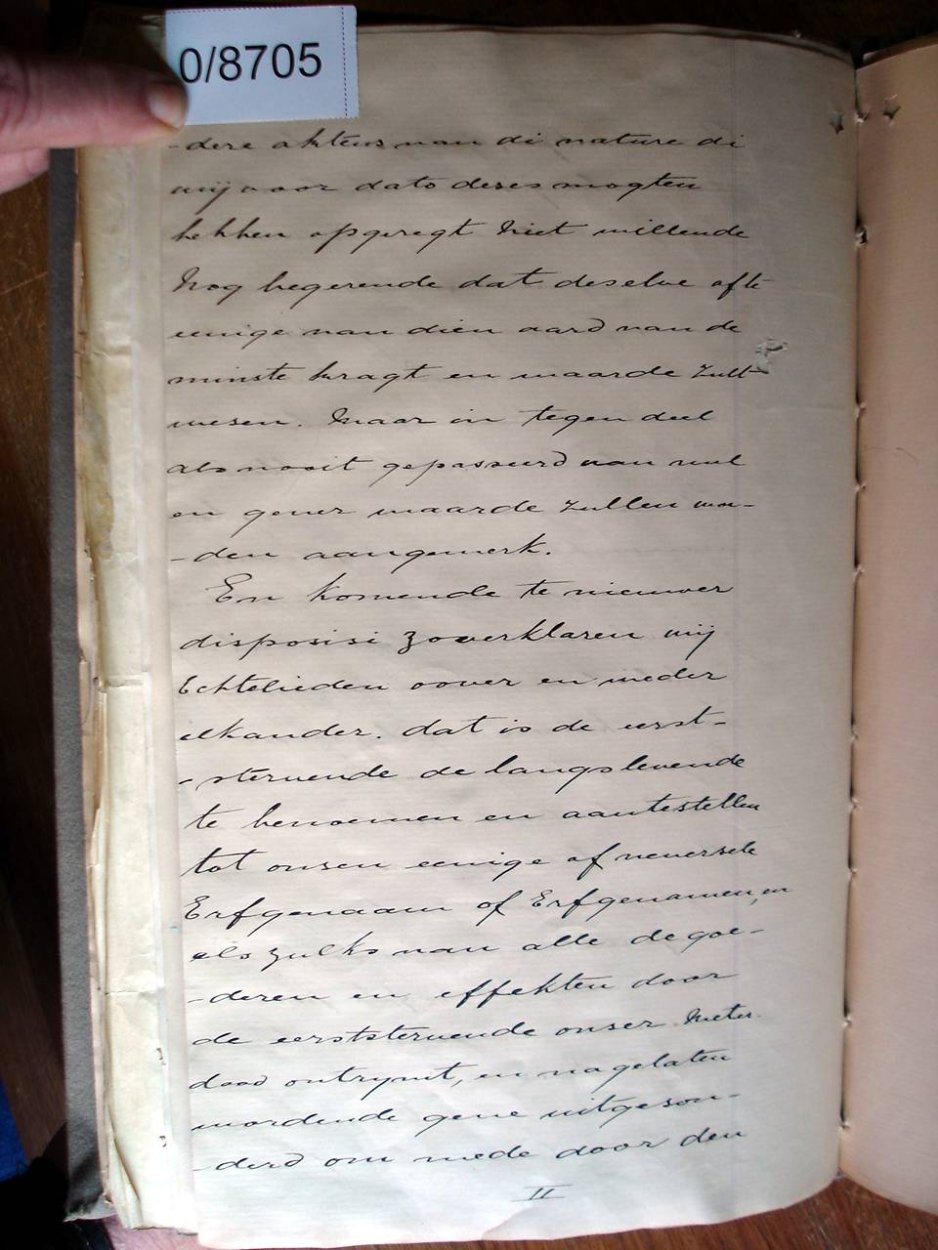 0/8705
-dere aktens van di nature di
wij voor dato deses mogten
hebben opgeregt Niet willende
Nog begerende dat deselve ofte
eenige van dien aard van de
minste kragt en waarde zult
wesen. Maar in tegen deel
als nooit gepasseerd van nul
en gener waarde zullen wor-
-den aangemerk.
En komende te nieuwer
disposisi zo verklaren wij
Echtelieden oover en weder
elkander. dat is de eerst-
-stervende de langslevende
te benoemen en aantestellen
tot onsen eenige of
Erfgenaam of Erfgenamen, en
als zulks van alle de goe-
-deren en effekten door
de eerststervende onser Meter
dood ontrymt, en nagelaten
wordende gene uitgeson-
-derd om mede door den
II